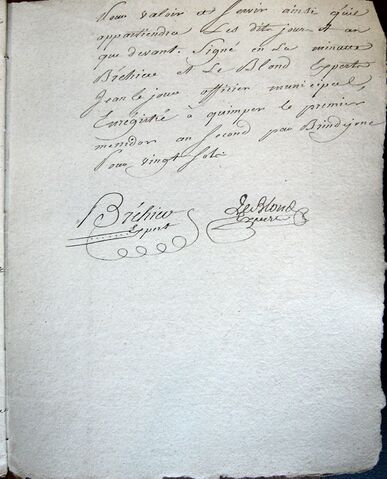 Pour valoir et servir ainsi qu'il
appartiendra Les dits jour et an
que devant. Signé en La minute
Bréhier et Le Blond Experts
Jean le jour officier municipal,
Enregistré à quimper le premier
messidor an Second par Brindejonc
Pour vingt sols
Bréhier Le Blond
Expert Expert